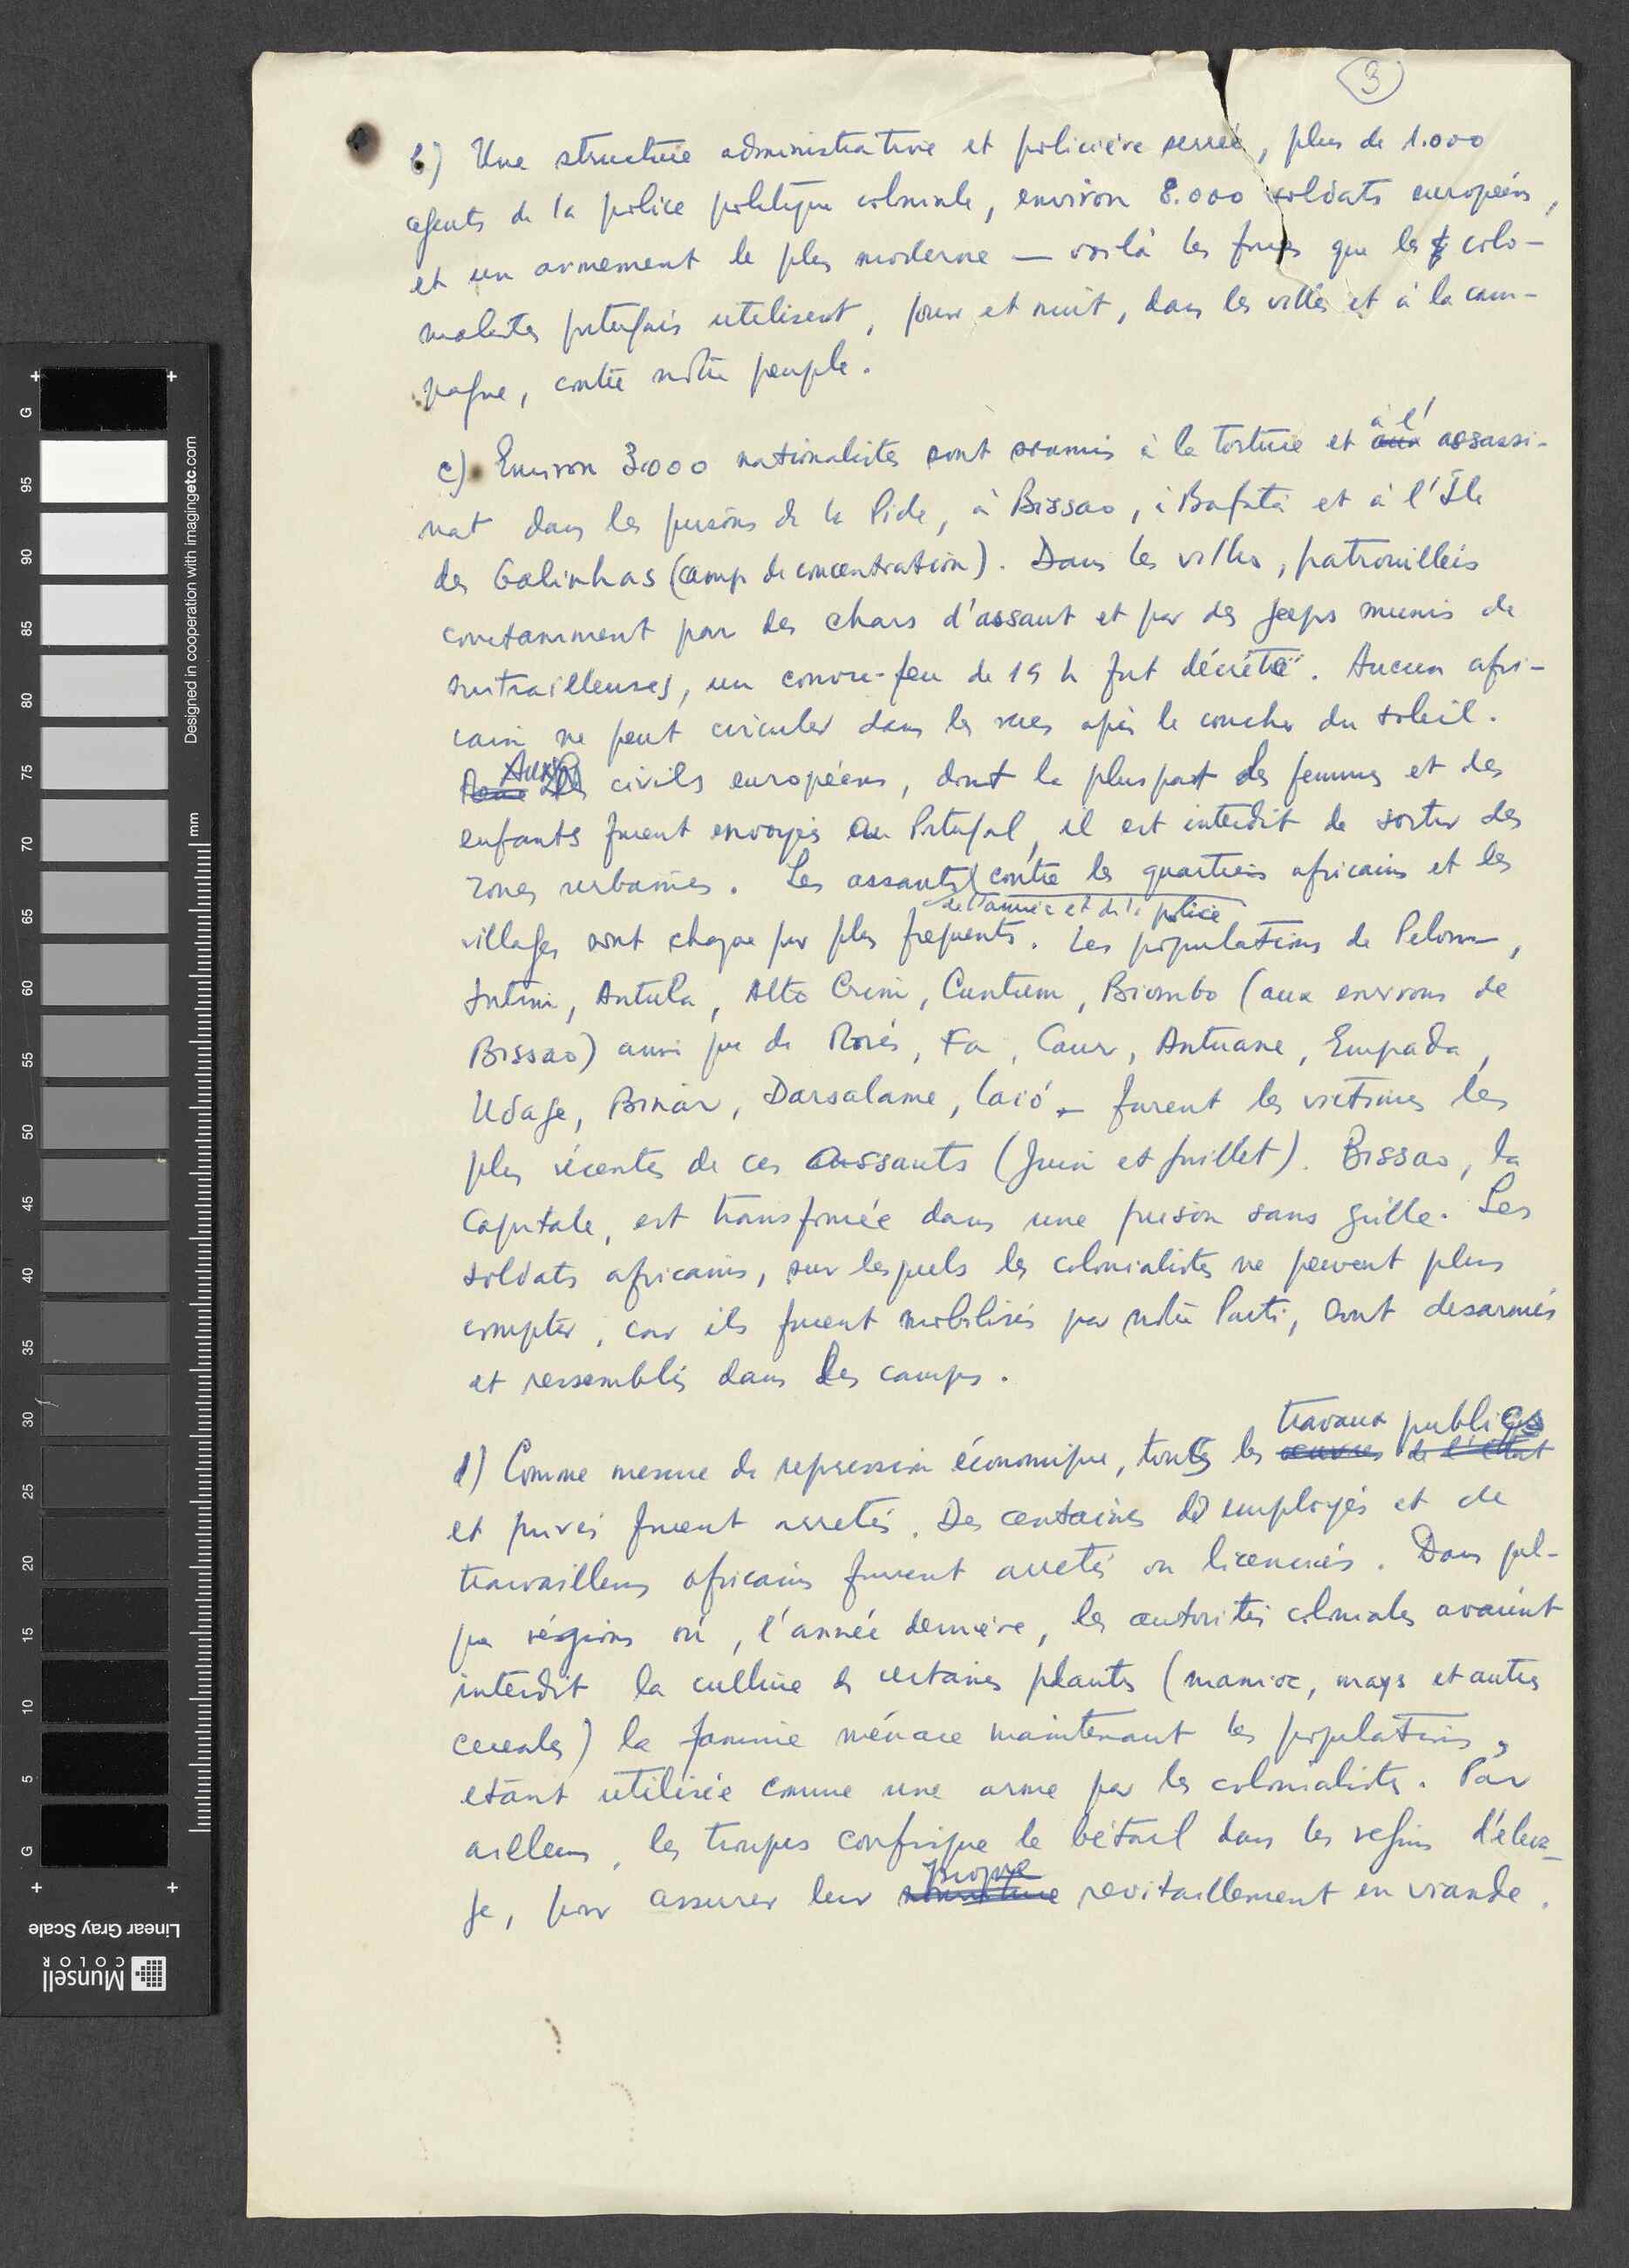 3
b) Une structure administrative et policière serrée, plus de 1.000
agents de la police politique coloniale, environ 8.000 soldats européens,
et un armement le plus moderne — voilà les forces que les colo-
nialistes portugais utilisent, jour et nuit, dans les villes et à la cam-
pagne, contre notre peuple.
c) Environ 3.000 nationalistes sont soumis à la torture et aux à l' assassi-
nat dans les prisons de la Pide, à Bissao, à Bafatá et à l'Île
des Galinhas (camp de concentration). Dans les villes, patrouillées
constamment par des chars d'assaut et par des jeeps munis de
mitrailleuses, un couvre-feu de 19 h fut décrété. Aucun afri-
cain ne peut circuler dans les rues après le coucher du soleil.
Aux civils européens, dont la pluspart des femmes et des
enfants furent envoyés au Portugal, il est interdit de sortir des
zones urbaines. Les assauts de l'armée et de la police contre les quartiers africains et les
villages sont chaque jour plus frequents. Les populations de Pelom,
Intim, Antula, Alto Crim, Cuntum, Biombo (aux environs de
Bissao) aussi que de Morés, Fa, Caur, Antuane, Empada,
Udage, Binar, Darsalame, Caió — furent les victimes les
plus récentes de ces assauts (Juin et Juillet). Bissao, la
Capitale, est transformée dans une prison sans grille. Les
soldats africains, sur lesquels les colonialistes ne peuvent plus
compter, car ils furent mobilisés par notre Parti, sont desarmés
et rassemblés dans des camps.
d) Comme mesure de repression économique, touts les oeuvres de l'état travaux publics
et privés furent arretés. Des centaines d'employés et de
travailleurs africains furent arretés ou licenciés. Dans quel-
que régions où, l'année dernière, les autorités coloniales avaient
interdit la culture de certaines plantes (manioc, mays et autres
cereales) la famine ménace maintenant les populations,
etant utilisée comme une arme par les colonialistes. Par
ailleurs, les troupes confisque le bétail dans les regions d'éleva-
ge, pour assurer leur propre revitaillement en viande.
Designed in cooperation with imagingetc.com
mm
G
95
90
85
80
75
70
65
60
55
50
45
40
35
30
25
20
15
10
5
G
Linear Gray Scale
Munsell
COLOR